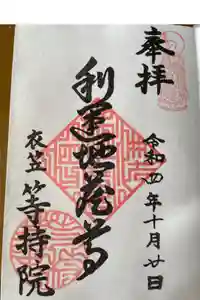 奉拝
令和四年十月廿日
利運地蔵尊
衣笠 等持院